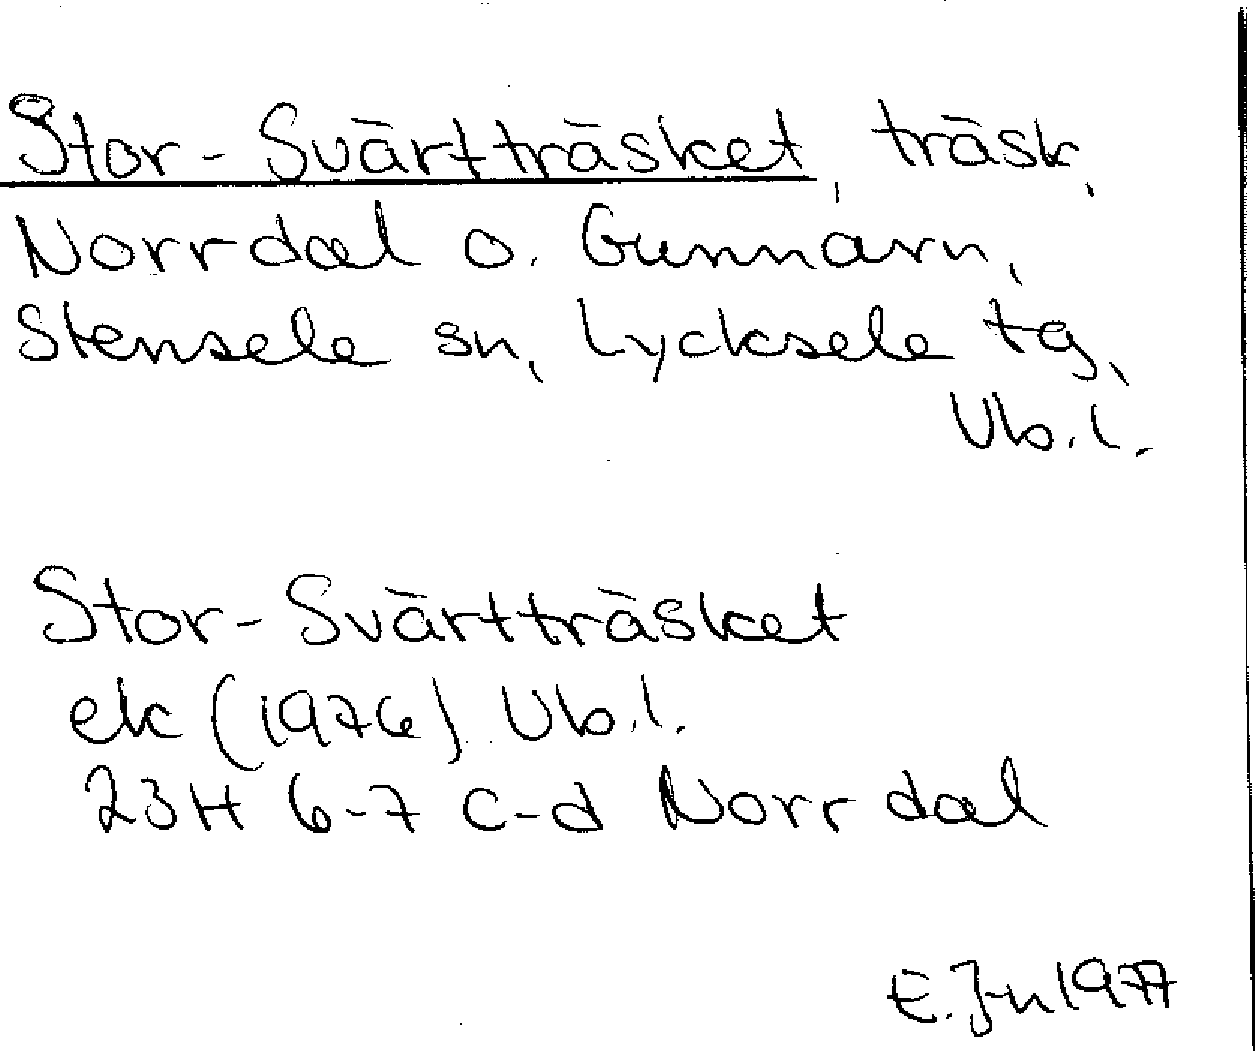 Stor-Svärtträsket, träsk,
Norrdal o. Gunnarn,
Stensele sn, Lycksele tg,
Vb.l.
Stor-Svärtträsket
ek (1976) Vb.l.
23H 6-7 c-d Norrdal
E.J-n 1977